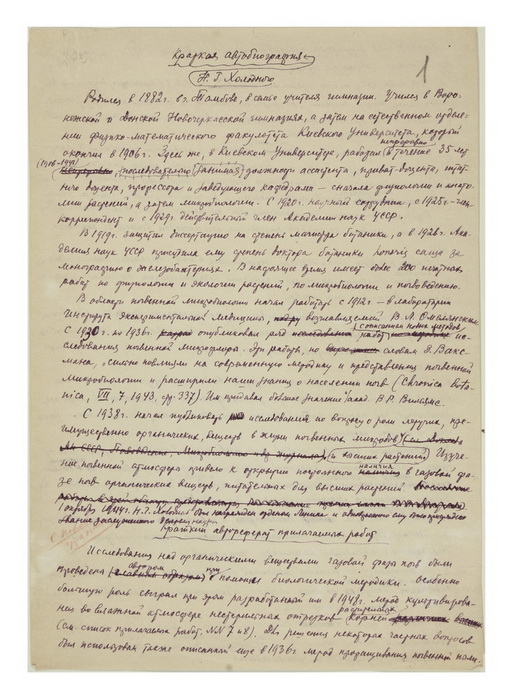 1
Краткая автобиография
Н. Г. Холодного
Родился в 1882 г. в г. Тамбове, в семье учителя гимназии. Учился в Воро-
нежской и Донской Новочеркасской гимназиях, а затем на естественном отделе-
нии физико-математического факультета Киевского Университета, который
окончил в 1906 г. Здесь же, в Киевском Университете, работал в течение 35 лет
(1906-1941) последовательно занимая должности ассистента, приват-доцента, штат-
ного доцента, профессора и заведующего кафедрами — сначала физиологии и анато-
мии растений, а затем микробиологии. С 1920 г. научный сотрудник, с 1925 г. — член-
корреспондент и с 1929 г. действительный член Академии наук УССР.
В 1919 г. защитил диссертацию на степень магистра ботаники, а в 1926 г. Ака-
демия наук УССР присудила ему степень доктора ботаники honoris causa за
монографию о железобактериях. В настоящее время имеет более 200 печатных
работ по физиологии и экологии растений, по микробиологии и почвоведению.
В области почвенной микробиологии начал работать с 1912 г. — в лаборатории
Института Экспериментальной Медицины, возглавляемой В. Л. Омелянским.
С 1930 г. по 1936 г. опубликовал ряд работ с описанием новых методов ис-
следования почвенной микрофлоры. Эти работы, по словам З. Вакс-
мана, "сильно повлияли на современную методику и представления почвенной
микробиологии и расширили наши знания о населении почв" (Chronica Bota-
nica, VII, 7, 1943, стр. 337). Им придавал большое значение акад. В. Р. Вильямс.
С 1938 г. начал публиковать исследования по вопросу о роли летучих, пре-
имущественно органических веществ в жизни почвенных микробов
(и высших растений). Изуче-
ние почвенной атмосферы привело к открытию постоянного наличия в газовой фа-
зе почв органических веществ, питательных для высших растений
Краткий автореферат прилагаемых работ
Исследования над органическими веществами газовой фазы почв были
проведены автором при помощи биологической методики. Особенно
большую роль сыграл при этом разработанный им в 1948 г. метод культивирова-
ния во влажной атмосфере нестерильных отрезков корней
(см. список прилагаемых работ NN 7 и 8). Для решения некоторых частных вопросов
был использован также описанный еще в 1936 г. метод проращивания почвенной пыли.